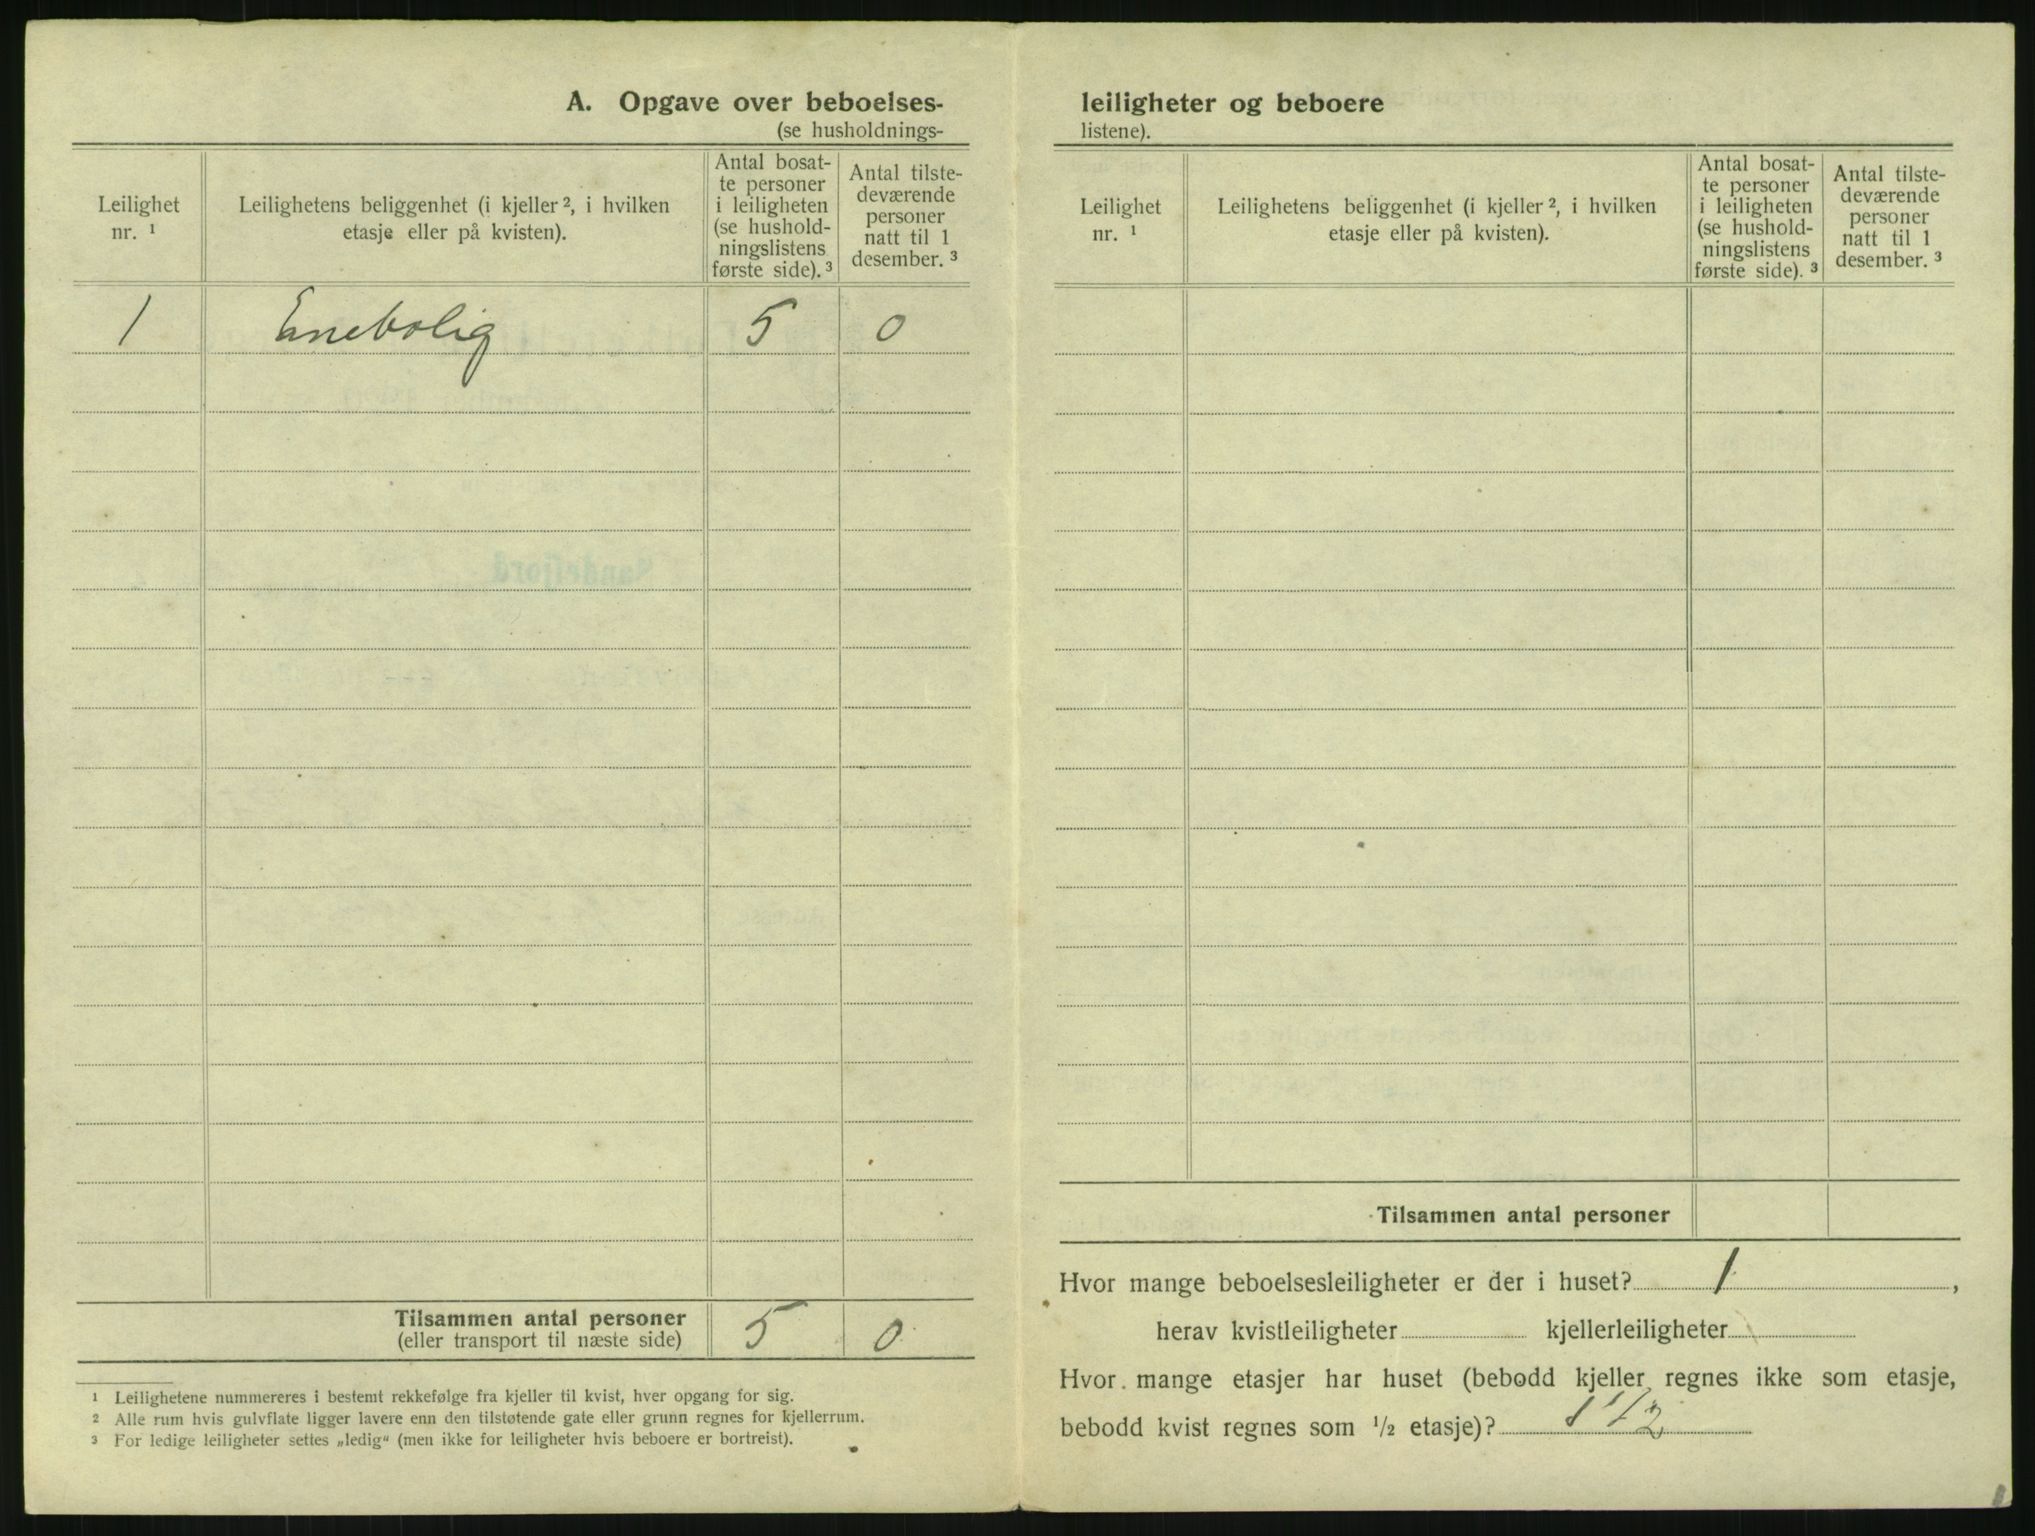 A. Opgave over beboelses-
(se husholdnings-
Leilighet nr. ¹
Leilighetens beliggenhet (i kjeller ², i hvilken
etasje eller på kvisten).
Antal bosat-
te personer
i leiligheten
(se hushold-
ningslistens
første side). ³
Antal tilste-
deværende
personer
natt til 1
desember. ³
1 Enebolig 5 0
Tilsammen antal personer 5 0
(eller transport til næste side)
¹ Leilighetene nummereres i bestemt rekkefølge fra kjeller til kvist, hver opgang for sig.
² Alle rum hvis gulvflate ligger lavere enn den tilstøtende gate eller grunn regnes for kjellerrum.
³ For ledige leiligheter settes „ledig“ (men ikke for leiligheter hvis beboere er bortreist).
leiligheter og beboere
listene).
Leilighet nr. ¹
Leilighetens beliggenhet (i kjeller ², i hvilken
etasje eller på kvisten).
Antal bosat-
te personer
i leiligheten
(se hushold-
ningslistens
første side). ³
Antal tilste-
deværende
personer
natt til 1
desember. ³
Tilsammen antal personer
Hvor mange beboelsesleiligheter er der i huset? 1,
herav kvistleiligheter kjellerleiligheter
Hvor mange etasjer har huset (bebodd kjeller regnes ikke som etasje,
bebodd kvist regnes som ½ etasje)? 1 1/2